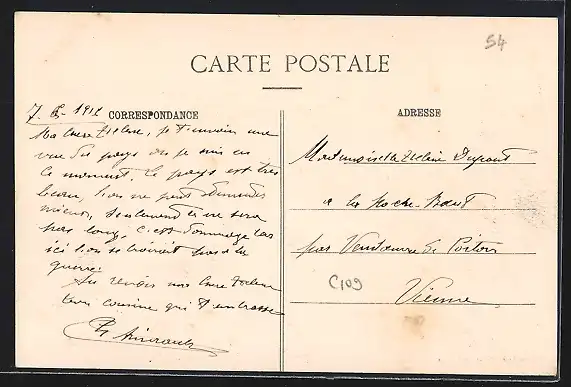 54
CARTE POSTALE
7. 6. 1912 CORRESPONDANCE
Ma chère Hélène, je t'envoie une
vue du pays où je suis en
ce moment. Le pays est très
beau, l'on ne peut demander
mieux, seulement ce ne sera
pas long, c'est dommage car
ici l'on se croirait pas à la
guerre.
Au revoir ma chère Hélène
ton cousine qui t'embrasse
ADRESSE
Mademoiselle Hélène Dupont
à la Roche-
par Vendeuvre de Poitou
Vienne
C109